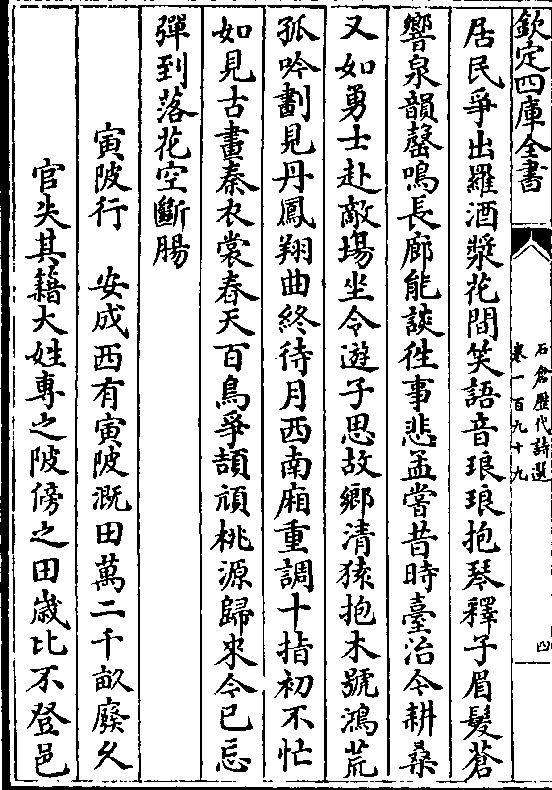 欽定四庫全書
石倉歴代詩選
卷一百九十九
四
居民爭出羅酒漿花間笑語音琅琅抱琴釋子眉髮蒼
響泉韻磬鳴長廊能談徃事悲孟嘗昔時臺治今耕桑
又如勇士赴敵場坐令遊子思故鄉清猿抱木號鴻荒
孤吟劃見丹鳳翔曲終待月西南廂重調十指初不忙
如見古畫秦衣裳春天百鳥爭頡頏桃源歸來今已忘
彈到落花空斷腸
寅陂行　安成西有寅陂溉田萬二千畝廢久
官失其籍大姓專之陂傍之田歲比不登邑